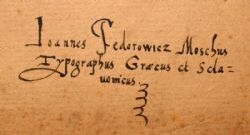 Ioannes Fedorowicz Moschus
Typographus Græcus et Sclau=
uonicus.